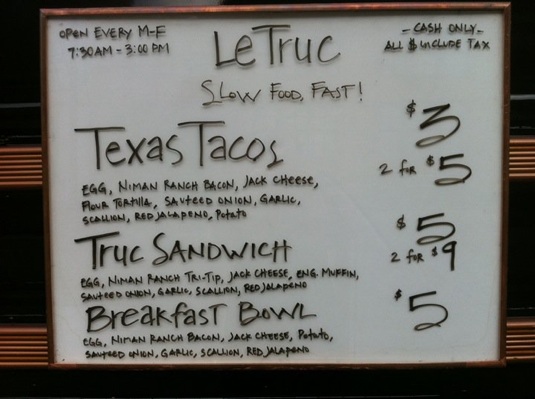 OPEN EVERY M-F
7:30AM - 3:00 PM
LeTruc
- CASH ONLY -
ALL $ INCLUDE TAX
SLOW FOOD, FAST!
Texas Tacos
$3
2 for $5
EGG, NIMAN RANCH BACON, JACK CHEESE,
FLOUR TORTILLA, SAUTEED ONION, GARLIC,
SCALLION, RED JALAPENO, POTATO
TRUC SANDWICH
$5
2 for $9
EGG, NIMAN RANCH TRI-TIP, JACK CHEESE, ENG. MUFFIN,
SAUTEED ONION, GARLIC, SCALLION, RED JALAPENO
BREAKFAST BOWL
$5
EGG, NIMAN RANCH BACON, JACK CHEESE, POTATO,
SAUTEED ONION, GARLIC, SCALLION, RED JALAPENO